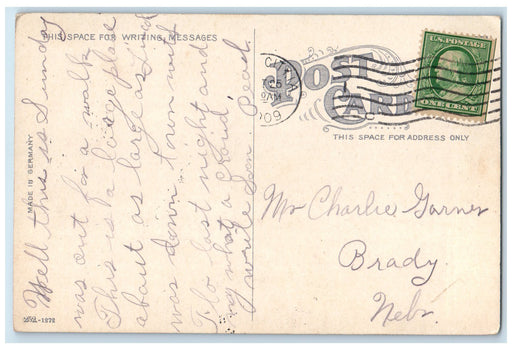 THIS SPACE FOR WRITING MESSAGES
Well this is Sunday
was out for a walk
This is a large place
about as large as
was down town with
Flo last night and
my what a crowd.
write soon Pearl
MADE IN GERMANY
POST
CARD
THIS SPACE FOR ADDRESS ONLY
CITY
9AM
1909
U.S. POSTAGE
ONE CENT
Mr Charlie Garner
Brady.
Nebr.
-1272